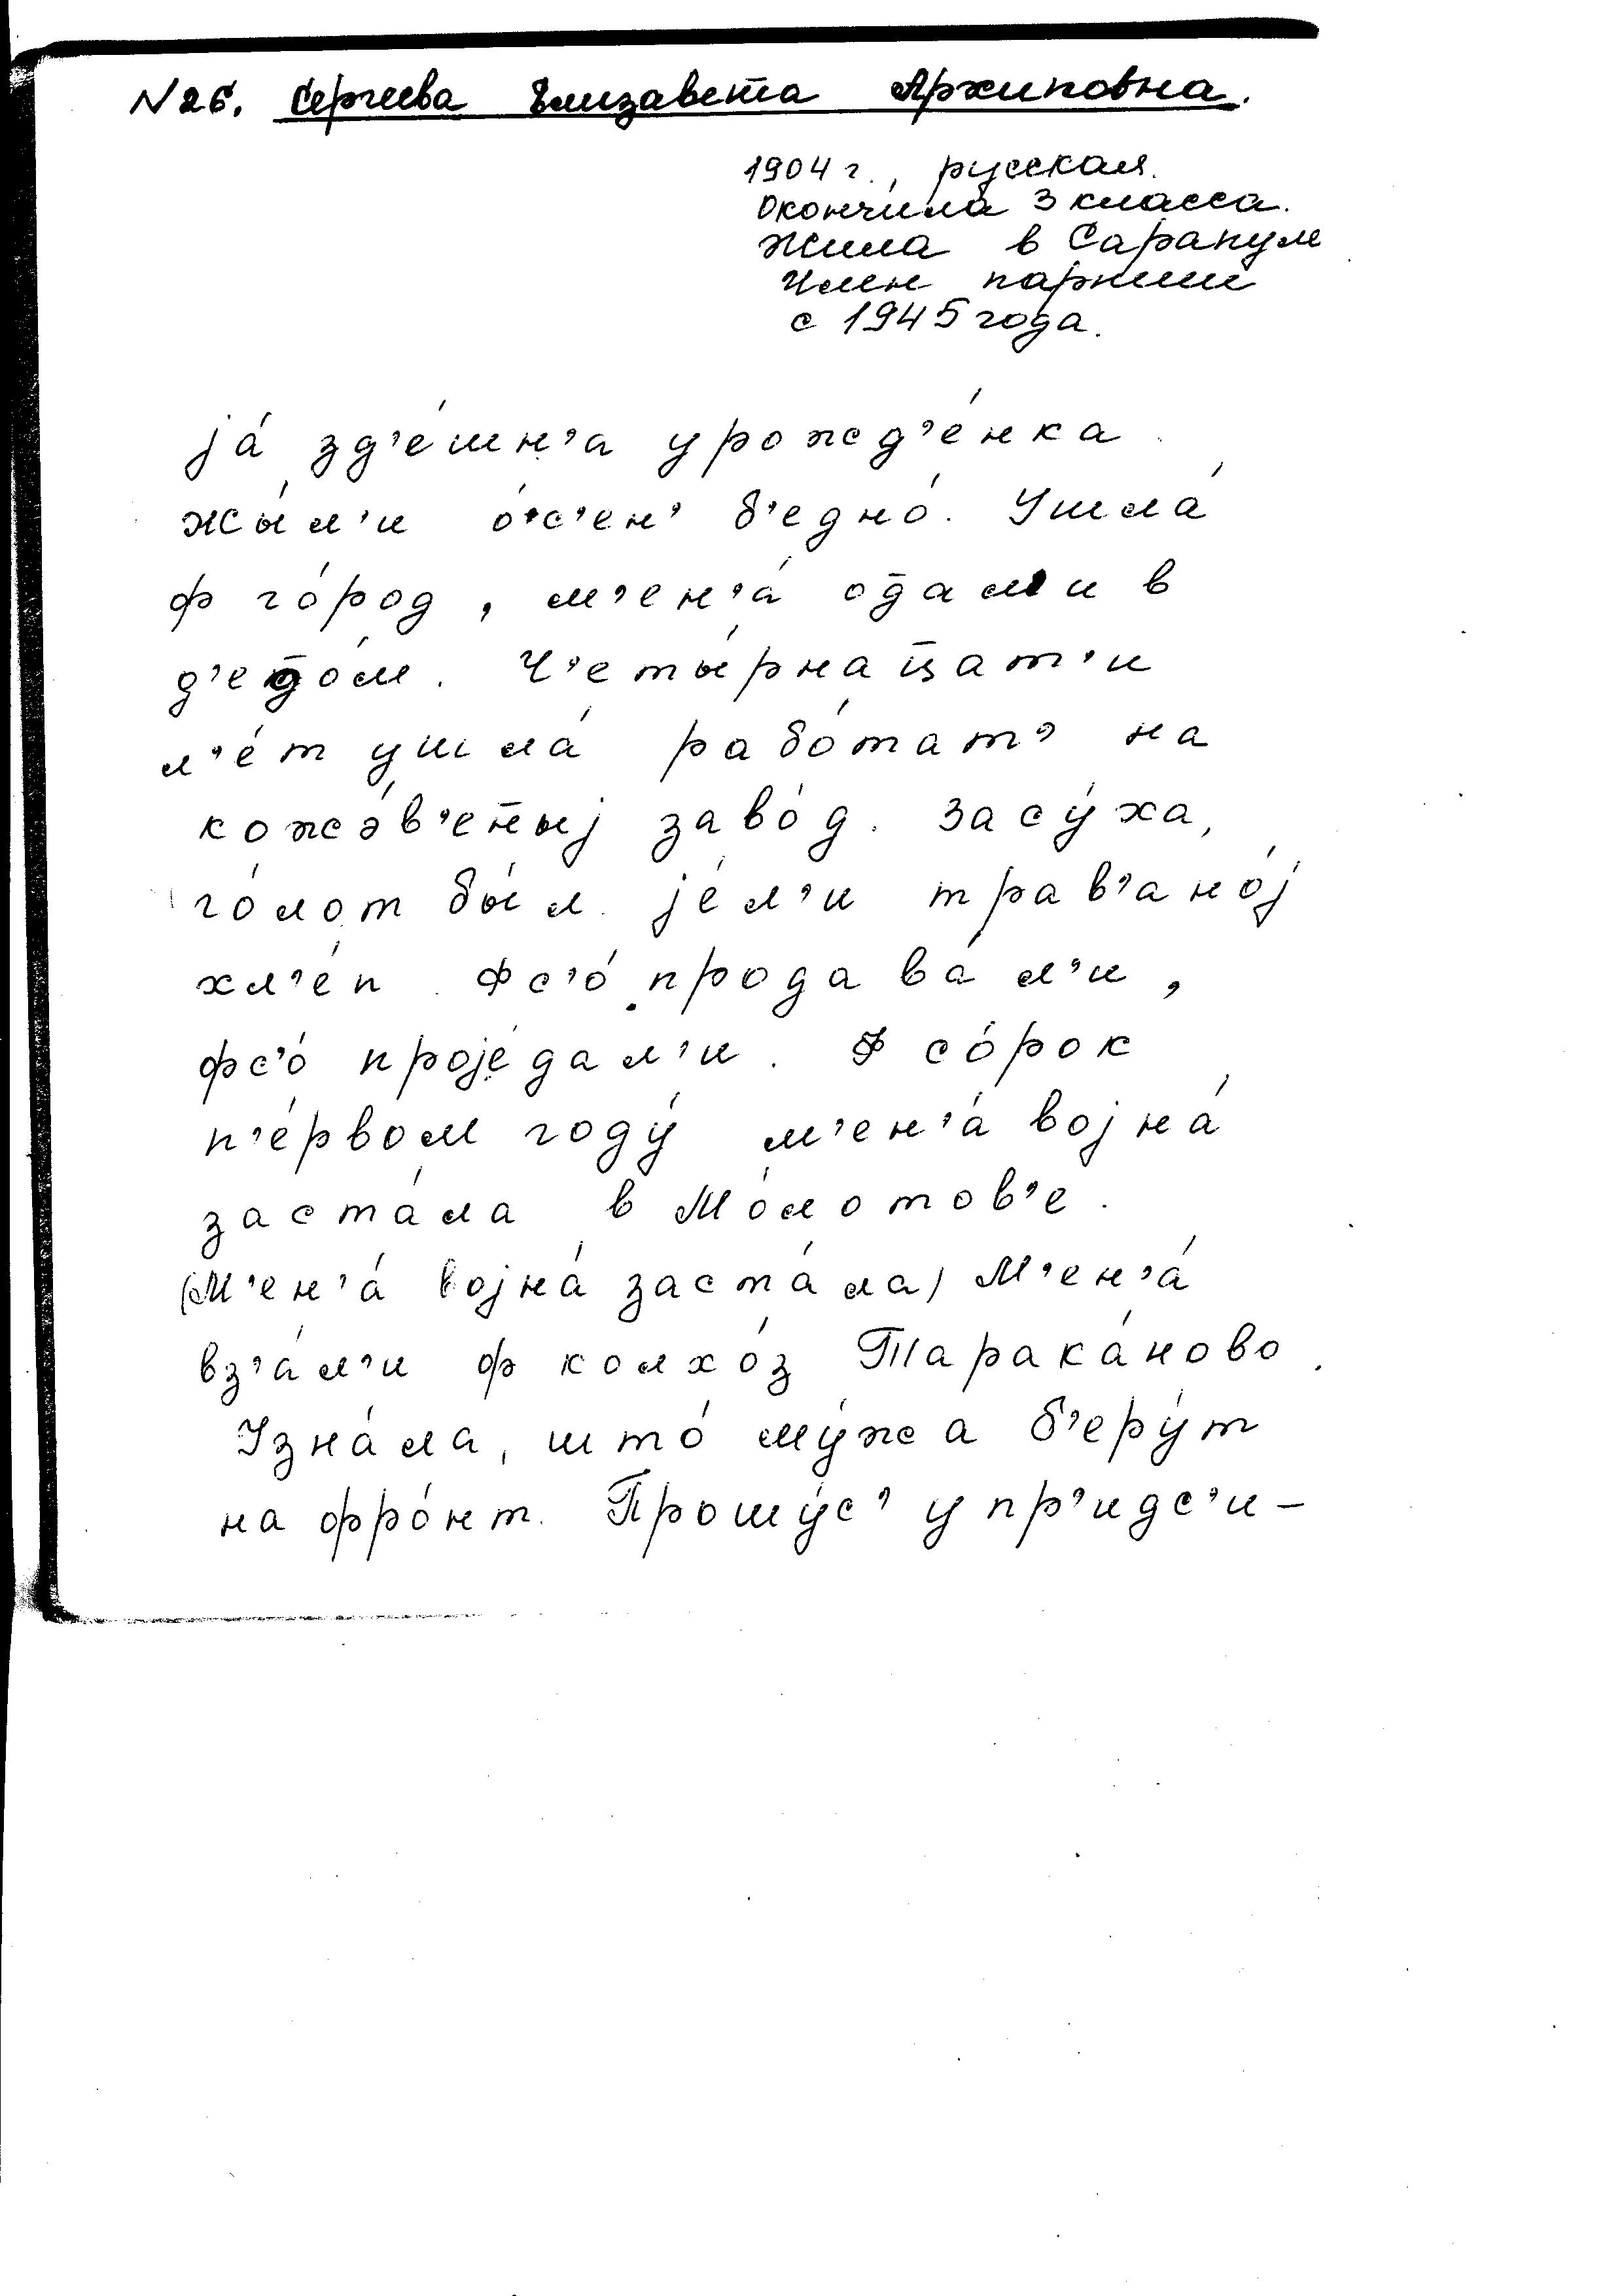 N26. Сергеева Елизавета Архиповна.
1904 г., русская.
Окончила 3 класса.
Жила в Сарапуле
Член партии
с 1945 года.
jа́ зд'е́шн'а урожд'е́нка.
жы́л'и о́'с'ен' б'едно́. Ушла́
ф го́род, м'ен'а́ о̄дал'и в
д'едо́м. Ч'еты́рнац̄ат'и
л'е́т ушла́ рабо́тат' на
кожэ́в'ен̄ыj заво́д. Засу́ха,
го́лот бы́л. jе́л'и трав'ано́j
хл'е́п. Фс'о́ продава́л'и,
фс'о́ проjеда́л'и. Ф со́рок
п'е́рвом году́ м'ен'а́ воjна́
заста́ла в Мо́лотов'е.
(М'ен'а́ воjна́ заста́ла) М'ен'а́
вз'а́л'и ф колхо́з Тарака́ново.
Узна́ла, што́ му́жа б'еру́т
на фро́нт. Прошу́с' у пр'идс'и-